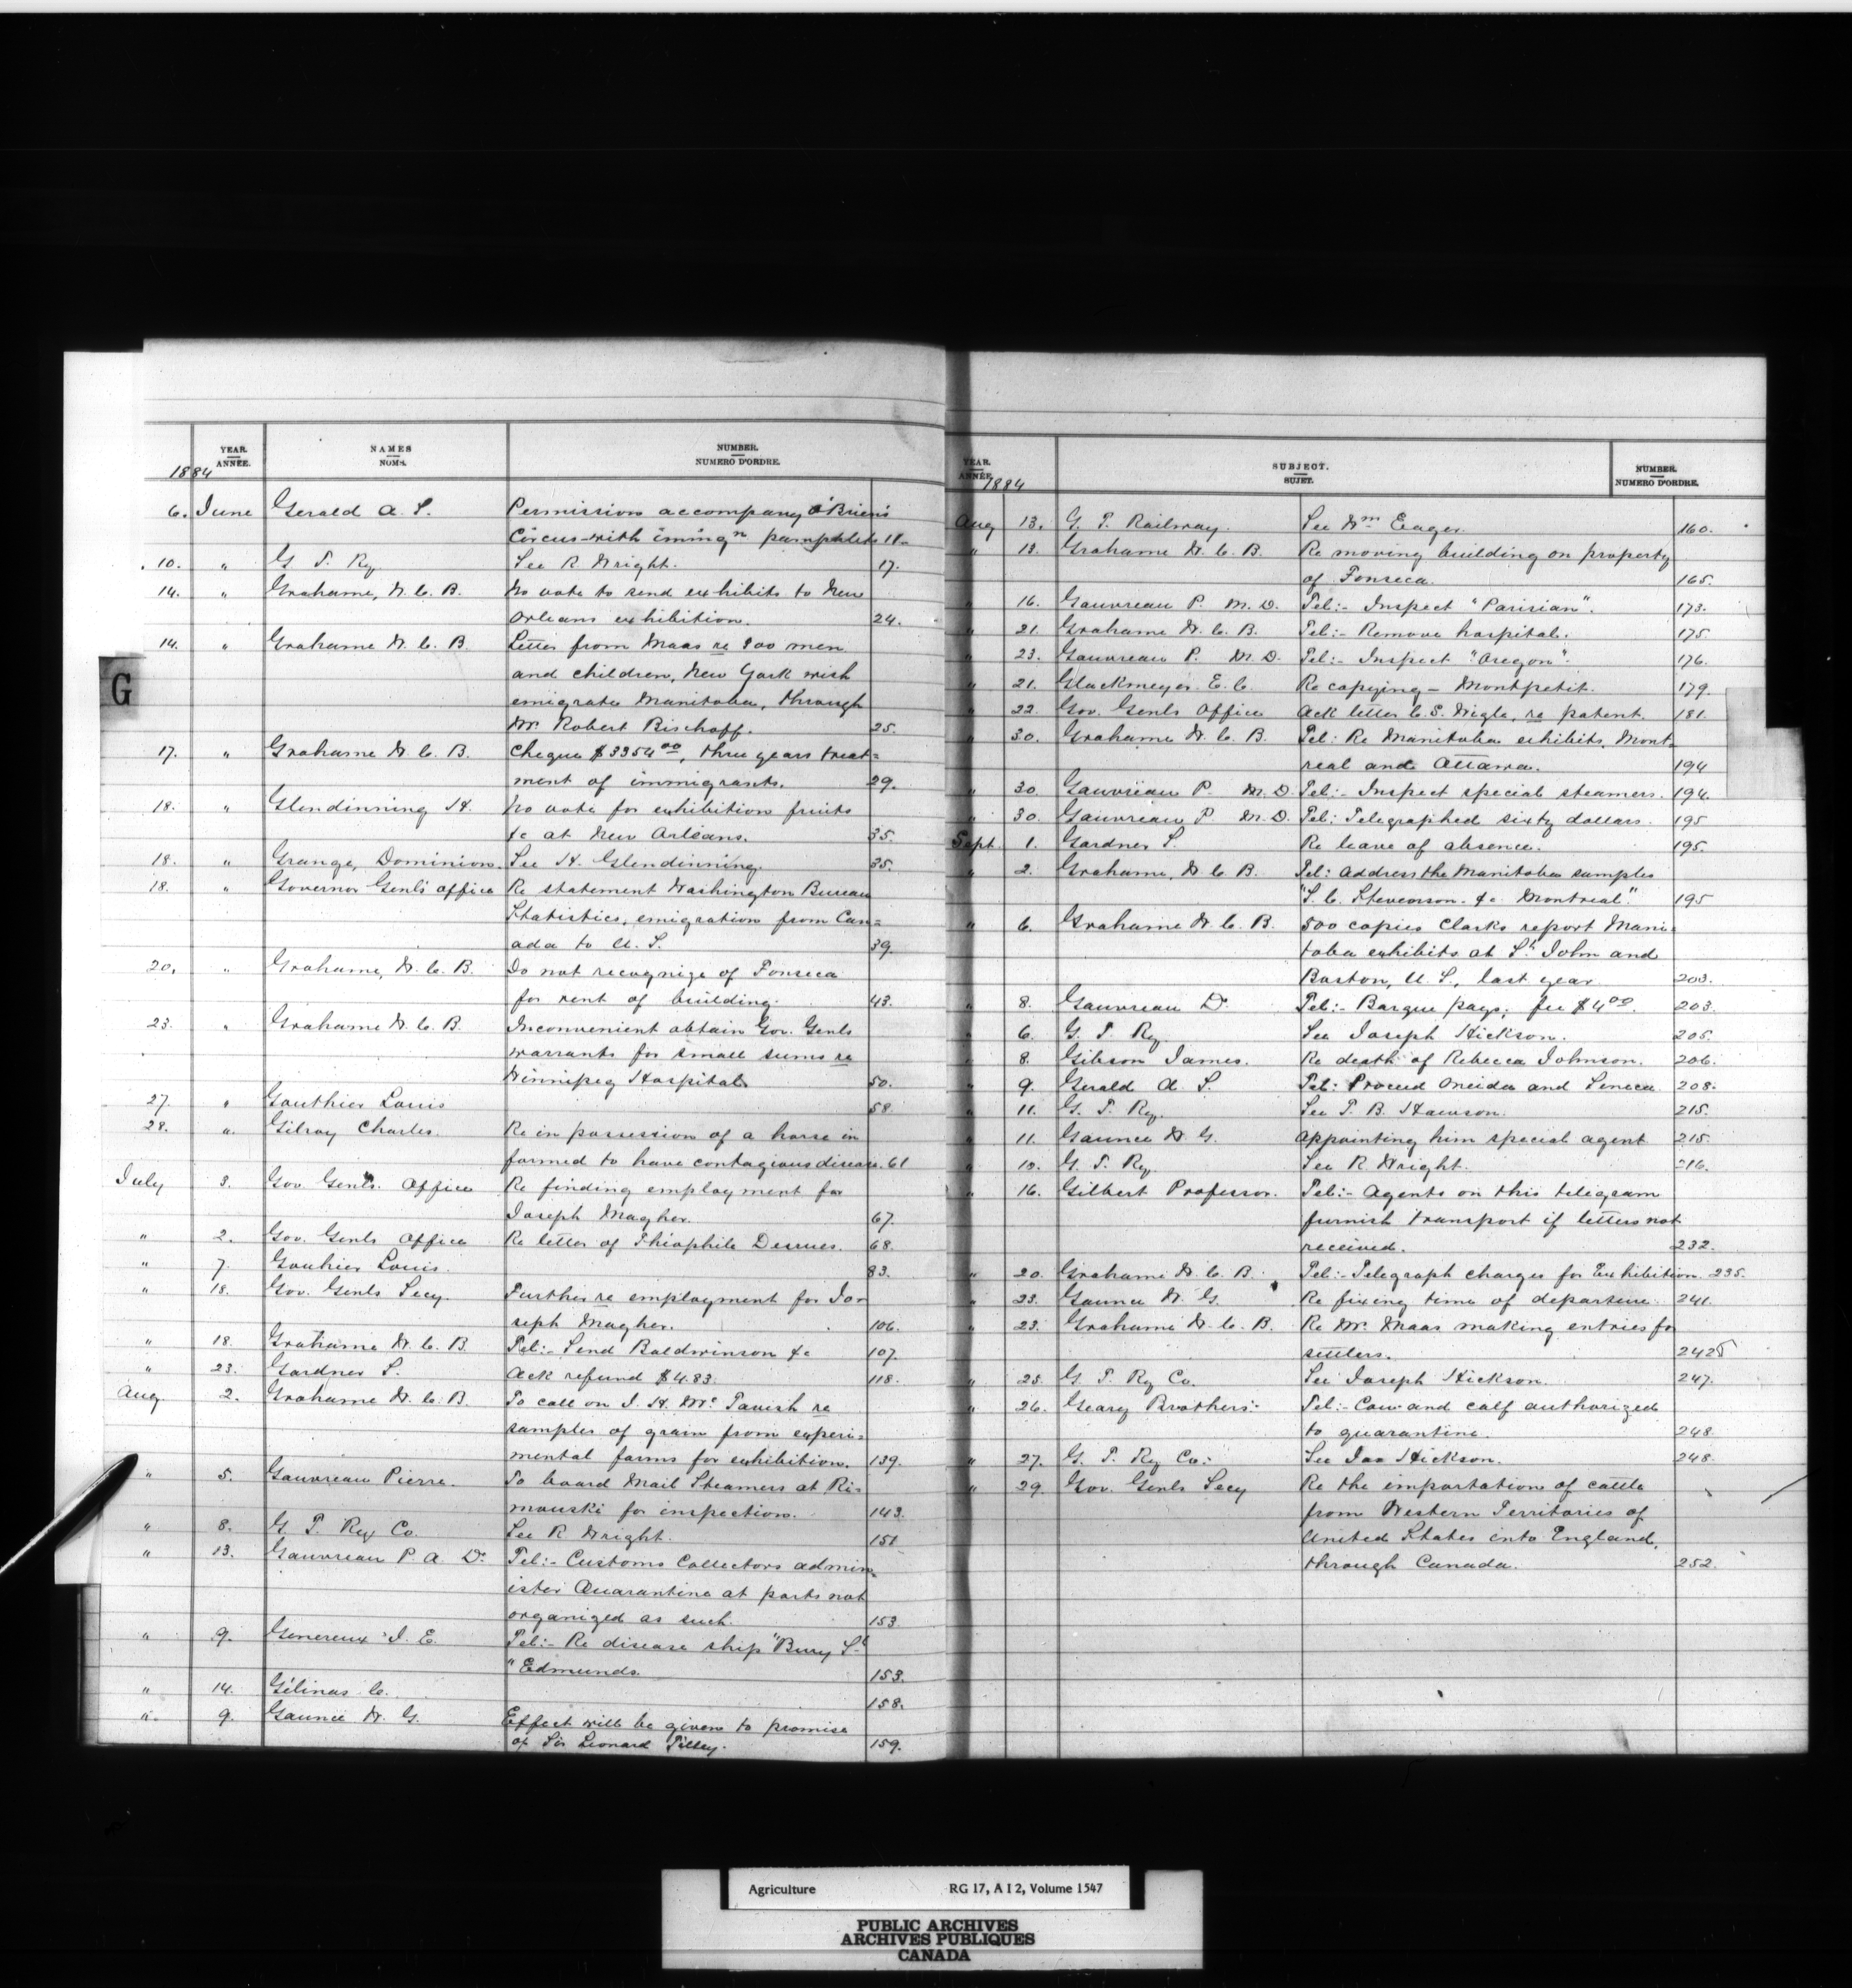 YEAR. NAMES NUMBER.
ANNÉE. NOMS. NUMERO D'ORDRE.
1884
6. June Gerald A. S. Permission accompany O'Brien's
Circus with immign pamphlets 11.
10. " G T. Ry. See R Wright. 17.
14. " Grahame, W. C. B. No vote to send exhibits to New
Orleans exhibition. 24.
14. " Grahame W. C. B. Letter from Maas re 800 men
and children, New York wish
emigrate Manitoba, through
Mr. Robert Bischoff. 25.
17. " Grahame W. C. B. Cheque $3354.00, three years treat=
ment of immigrants. 29.
18. " Glendinning H. No vote for exhibition fruits
&c at New Orleans. 35.
18. " Grange, Dominion. See H. Glendinning. 35.
18. " Governor Genl's office Re statement Washington Bureau
Statistics, emigration from Can=
ada to U. S. 39.
20. " Grahame, W. C. B. Do not recognize of Fonseca
for rent of building. 43.
23. " Grahame W. C. B. Inconvenient obtain Gov. Genls
warrants for small sums re
Winnipeg Hospital. 50.
27. " Gauthier Louis 58.
28. " Gilray Charles. Re in possession of a horse in
formed to have contagious disease. 61
July 3. Gov Genls. Office Re finding employment for
Joseph Magher. 67.
" 2. Gov. Genls Office Re letter of Théophile Desrues. 68.
" 7. Gouhier Louis. 83.
" 18. Gov. Genls Secy. Further re employment for Jo=
seph Magher. 106.
" 18. Grahame W. C. B. Tel:- Send Baldwinson &c 107.
" 23. Gardner S. Ack refund $4.83. 118.
Aug 2. Grahame W. C. B. To call on J. H. McTavish re
samples of grain from experi=
mental farms for exhibition. 139.
" 5. Gauvreau Pierre. To board Mail Steamers at Ri=
mouski for inspection. 143.
" 8. G. T. Ry Co. See R. Wright. 151
" 13. Gauvreau P. A Dr Tel:- Customs Collectors admin=
ister Quarantine at ports not
organized as such. 153.
" 9. Genereux J. E. Tel:- Re disease ship "Bury St
"Edmunds. 153.
" 14. Gélinas C. 158.
" 9. Gaunce W. G. Effect will be given to promise
of Sir Leonard Tilley. 159.
G
YEAR. SUBJECT. NUMBER.
ANNÉE. SUJET. NUMERO D'ORDRE.
1884
Aug 13. G. T. Railway. See Wm Eager. 160.
" 13. Grahame W. C. B. Re moving building on property
of Fonseca. 165.
" 16. Gauvreau P. M. D. Tel:- Inspect "Parisian". 173.
" 21. Grahame W. C. B. Tel:- Remove hospital. 175.
" 23. Gauvreau P. M. D. Tel:- Inspect "Oregon". 176.
" 21. Glackmeyer. E. C. Re copying - Montpetit. 179.
" 22. Gov. Genls Office Ack letter C. S. Wigle, re patent. 181.
" 30. Grahame W. C. B. Tel: Re Manitoba exhibits, Mont=
real and Ottawa. 194
" 30. Gauvreau P. M. D. Tel:- Inspect special steamers. 194.
" 30. Gauvreau P M. D. Tel: Telegraphed sixty dollars. 195
Sept. 1. Gardner S. Re leave of absence. 195.
" 2. Grahame, W C B. Tel: Address the Manitoba samples
"S. C. Stevenson. &c Montreal." 195
" 6. Grahame W. C. B. 500 copies Clarks report Mani=
toba exhibits at St John and
Boston, U. S., last year 203.
" 8. Gauvreau Dr Tel:- Barque pays, fee $4.00. 203.
" 6. G. T. Ry. See Joseph Hickson. 205.
" 8. Gibson James. Re death of Rebecca Johnson. 206.
" 9. Gerald A. S. Tel: Proceed Oneida and Seneca 208.
" 11. G. T. Ry. See T. B. Hawson. 215.
" 11. Gaunce W. G. Appointing him special agent 215.
" 10. G. T. Ry. See R Wright. 216.
" 16. Gilbert Professor. Tel:- Agents on this telegram
furnish transport if letters not
received. 232.
" 20. Grahame W. C. B. Tel:- Telegraph charges for Exhibition 235.
" 23. Gaunce W. G. Re fixing time of departure. 241.
" 23. Grahame W. C. B. Re Mr. Maas making entries for
settlers. 242
" 25. G. T. Ry Co. See Joseph Hickson. 247.
" 26. Geary Brothers:- Tel:- Cow and calf authorized
to quarantine. 248
" 27. G. T. Ry Co: See Jos Hickson. 248.
" 29. Gov. Genls Secy Re the importation of cattle
from Western Territories of
United States into England,
through Canada. 252.
Agriculture RG 17, A I 2, Volume 1547
PUBLIC ARCHIVES
ARCHIVES PUBLIQUES
CANADA